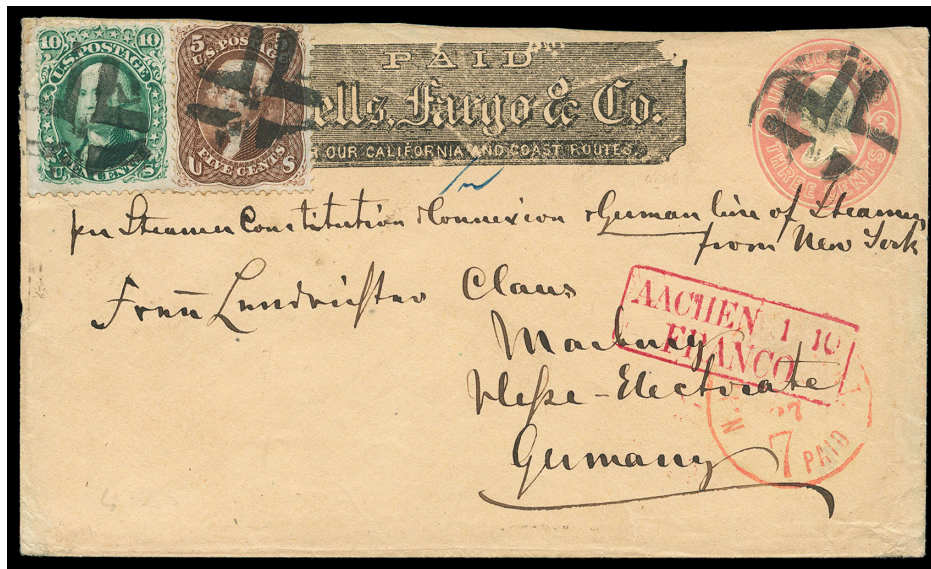 10 10
U.S. POSTAGE
TEN CENTS
U S
5
U.S. POSTAGE
FIVE CENTS
U S
PAID
ells, Fargo & Co.
R OUR CALIFORNIA AND COAST ROUTES.
3
THREE CENTS
per Steamer Constitution & Connexion & German line of Steamers
from New York
Claus
Marburg
Hesse-Electorate
Germany
AACHEN 1 10
FRANCO
27
7 PAID